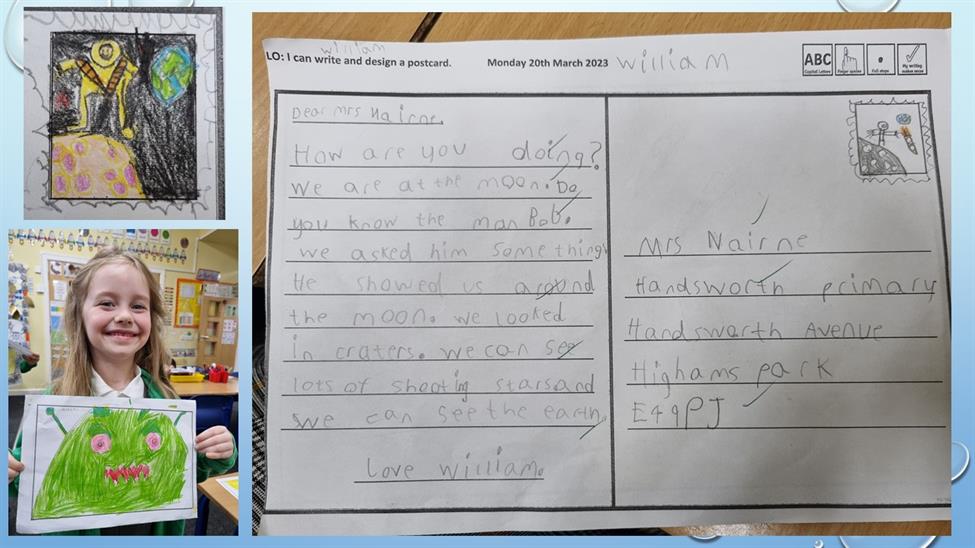 LO: I can write and design a postcard.
william
Monday 20th March 2023
william
ABC
Capital Letters
Finger spaces
Full stops
My writing makes sense
Dear Mrs Nairne.
How are you doing?
we are at the moon. Do
you know the man Bob.
we asked him something
He showed us around
the moon. we looked
in craters. we can see
lots of shooting stars and
we can see the earth
love william.
Mrs Nairne
Handsworth primary
Handsworth Avenue
Highams park
E49PJ